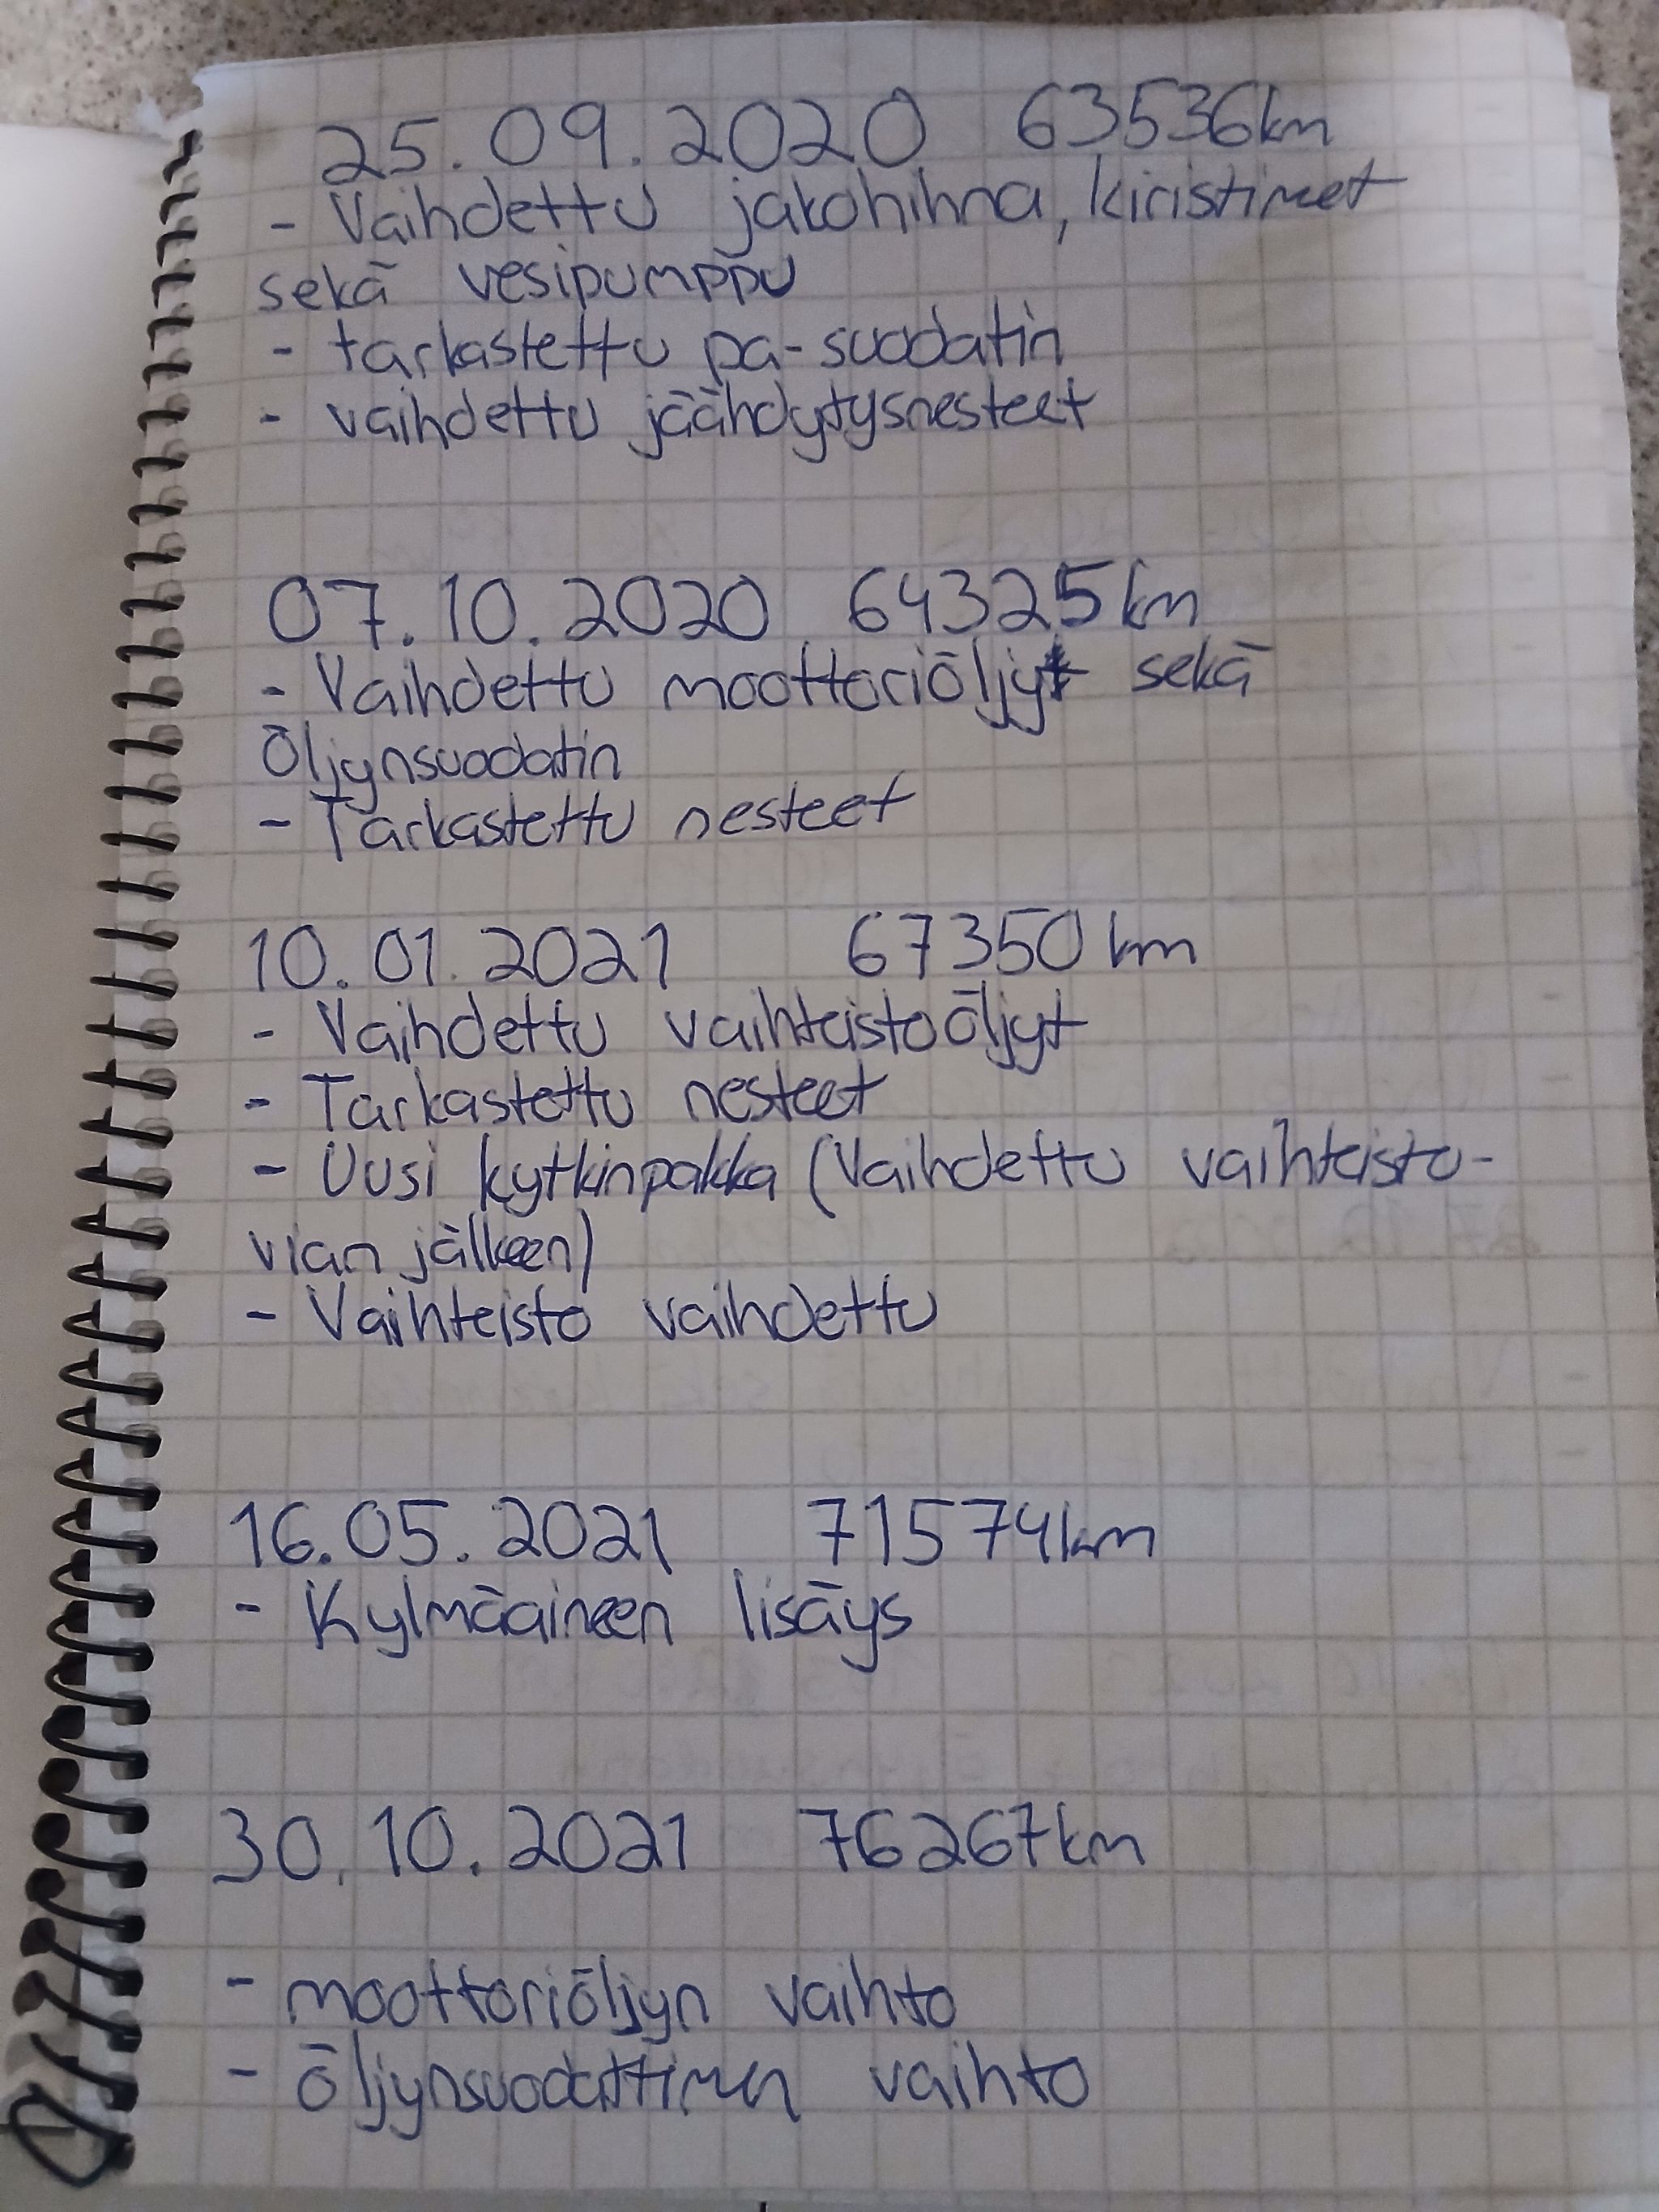 25.09.2020 63536km
- Vaihdettu jakohihna, kiristimet
sekä vesipumppu
- tarkastettu pa-suodatin
- vaihdettu jäähdytysnesteet
07.10.2020 64325km
- Vaihdettu moottoriöljyt sekä
Öljynsuodatin
- Tarkastettu nesteet
10.01.2021 67350km
- Vaihdettu vaihteistoöljyt
- Tarkastettu nesteet
- Uusi kytkinpakka (Vaihdettu vaihteisto-
vian jälkeen)
- Vaihteisto vaihdettu
16.05.2021 71574km
- Kylmäaineen lisäys
30.10.2021 76267km
- moottoriöljyn vaihto
- öljynsuodattimen vaihto